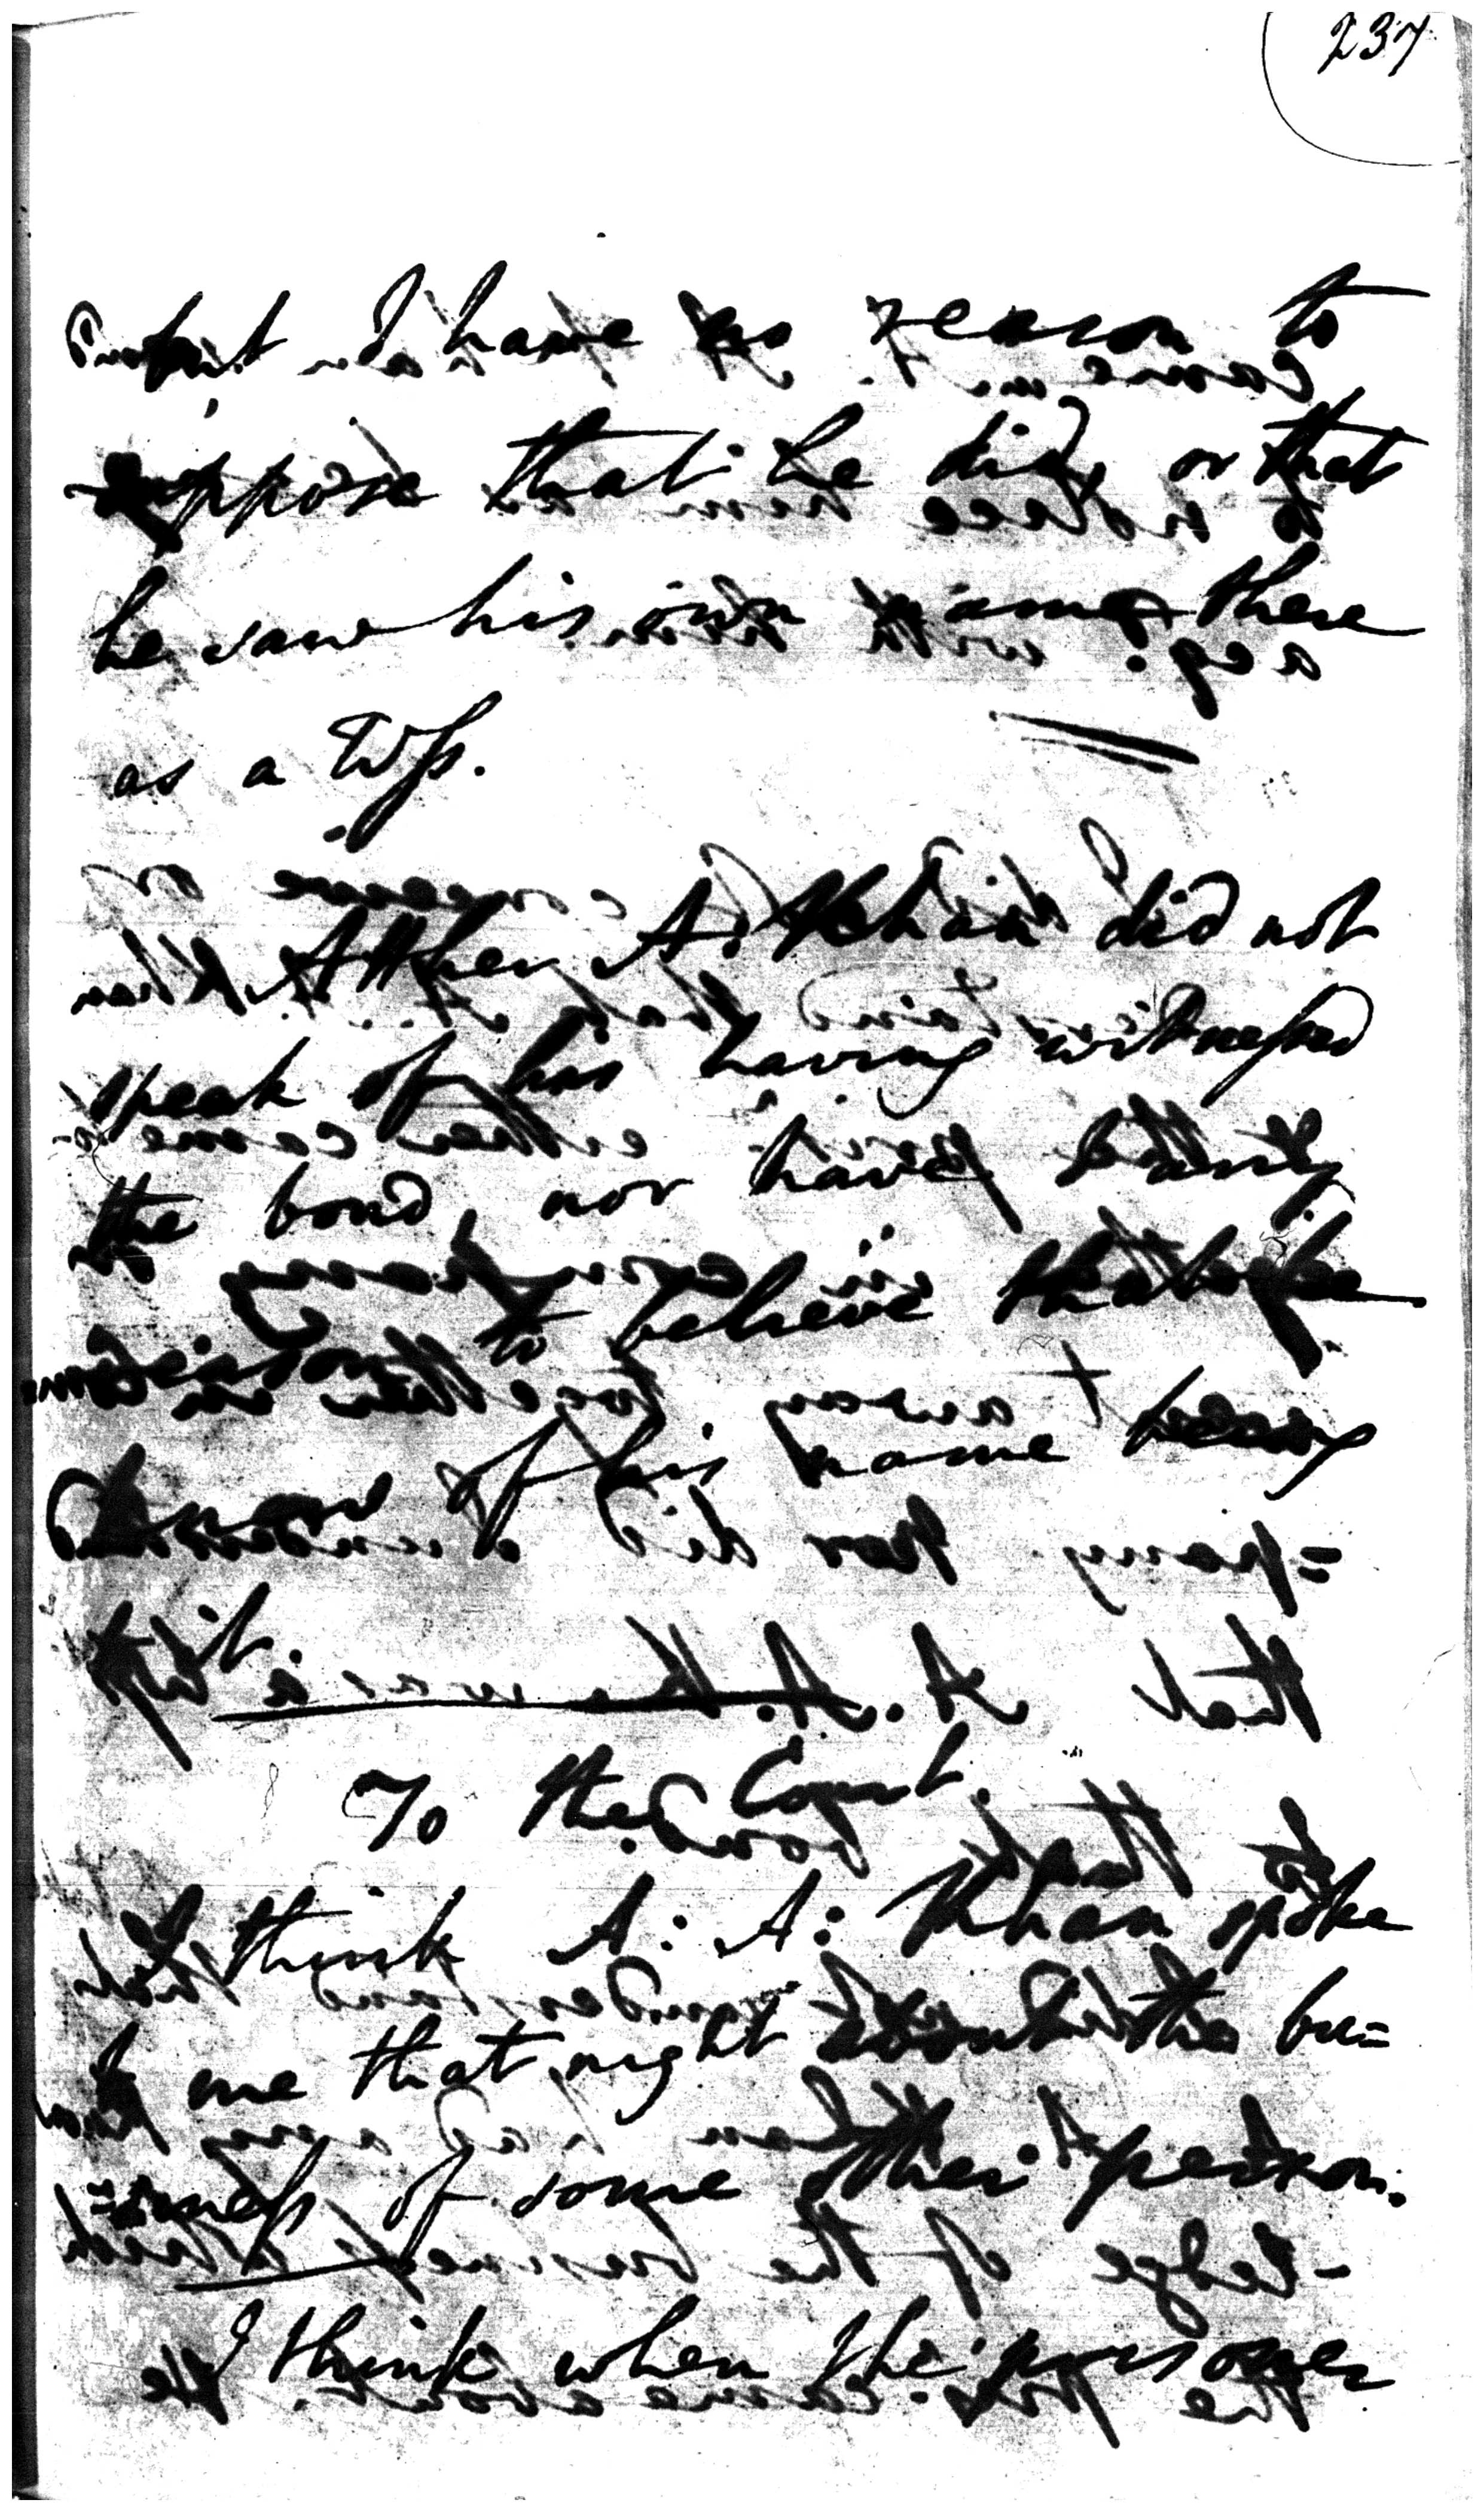 237
but I have no reason to
suppose that he did, or that
he saw his own name there
as a Wss.
Ather A. Khan did not
speak of his having witnessed
the bond, nor have I any
reason to believe that he
knew of his name being
to it.
To the Court.
I think A: A: Khan spoke
to me that night about the bu=
=siness of some other person.
I think when the prisoner